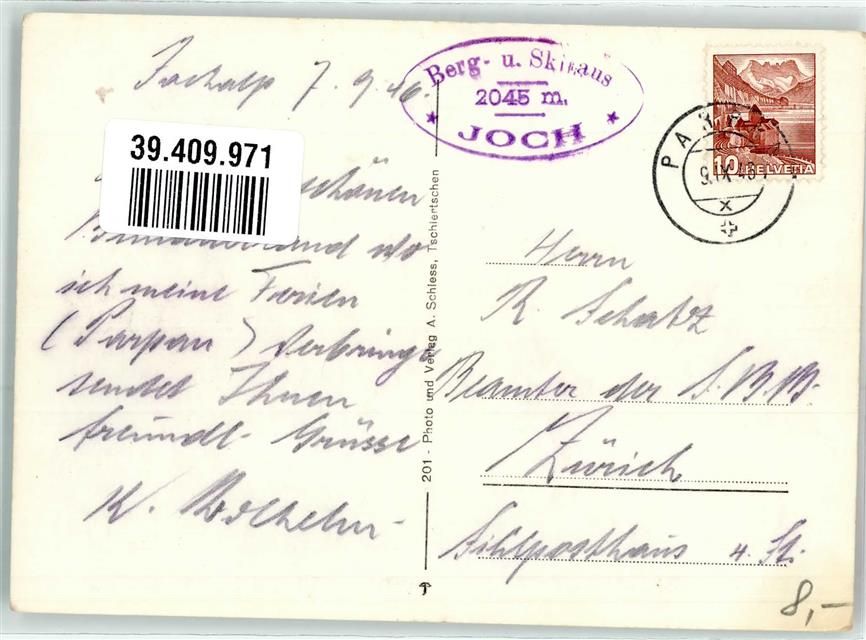 Jochalp 7.9.46.
39.409.971
schönen
Bündnerland wo
ich meine Ferien
(Parpan) verbringe
sendet Ihnen
freundl. Grüsse
K.
Berg- u. Skihaus
2045 m.
JOCH
201 - Photo und Verlag A. Schless, Tschiertschen
PARPAN
9.IX.46
10 HELVETIA
Herrn
R. Schatz
Beamter der S.B.B.
Zürich
Sihlposthaus 4. St.
8,-